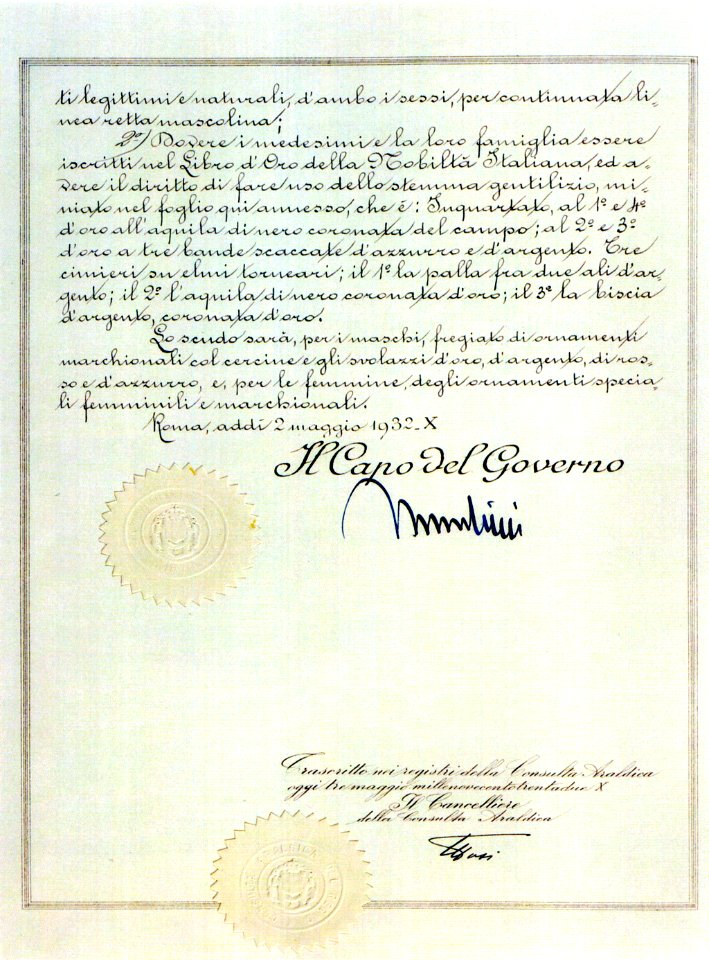 ti legittimi e naturali, d'ambo i sessi, per continuata li-
nea retta mascolina;
2º) Dovere i medesimi e la loro famiglia essere
iscritti nel Libro d'Oro della Nobiltà Italiana, ed a-
vere il diritto di fare uso dello stemma gentilizio, mi-
niato nel foglio qui annesso, che è: Inquartato, al 1º e 4º
d'oro all'aquila di nero coronata del campo; al 2º e 3º
d'oro a tre bande scaccate d'azzurro e d'argento. Tre
cimieri su elmi torneari; il 1º la palla fra due ali d'ar-
gento; il 2º l'aquila di nero coronata d'oro; il 3º la biscia
d'argento, coronata d'oro.
Lo scudo sarà, per i maschi, fregiato di ornamenti
marchionali col cercine e gli svolazzi d'oro, d'argento, di ros-
so e d'azzurro, e, per le femmine, degli ornamenti specia-
li femminili e marchionali.
Roma, addì 2 maggio 1932-X
Il Capo del Governo
Mussolini
Trascritto nei registri della Consulta Araldica
oggi tre maggio millenovecentotrentadue X
Il Cancelliere
della Consulta Araldica